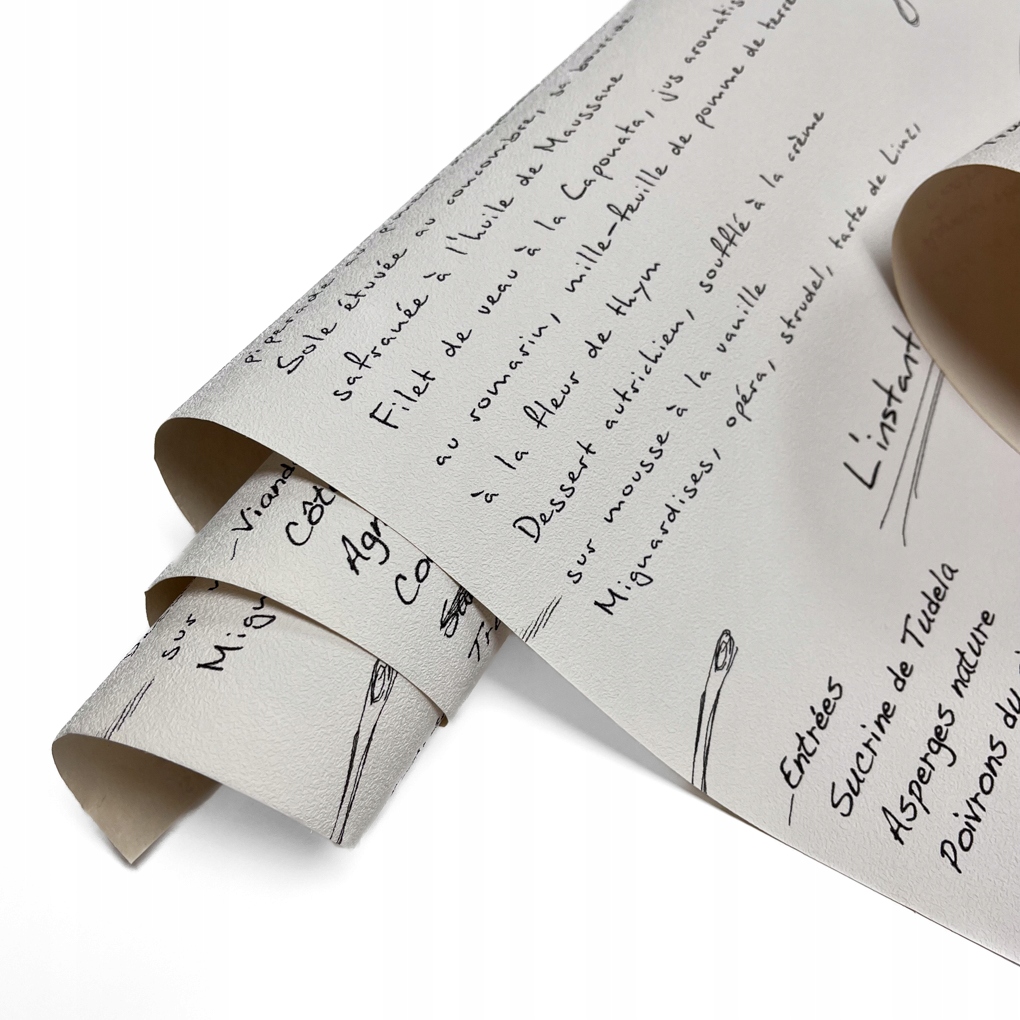 piperade
Sole étuvée au concombre, sa
safranée à l'huile de Maussane
Filet de veau à la Caponata, jus aromatis
au romarin, mille-feuille de pomme de terre
à la fleur de thym
Dessert autrichien, soufflé à la crème
sur mousse à la vanille
Mignardises, opéra, strudel, tarte de Linz,
L'instant
Entrées
Sucrine de Tudela
Asperges nature
Poivrons du
Viand
Côt
Agn
Co
sur
Mign